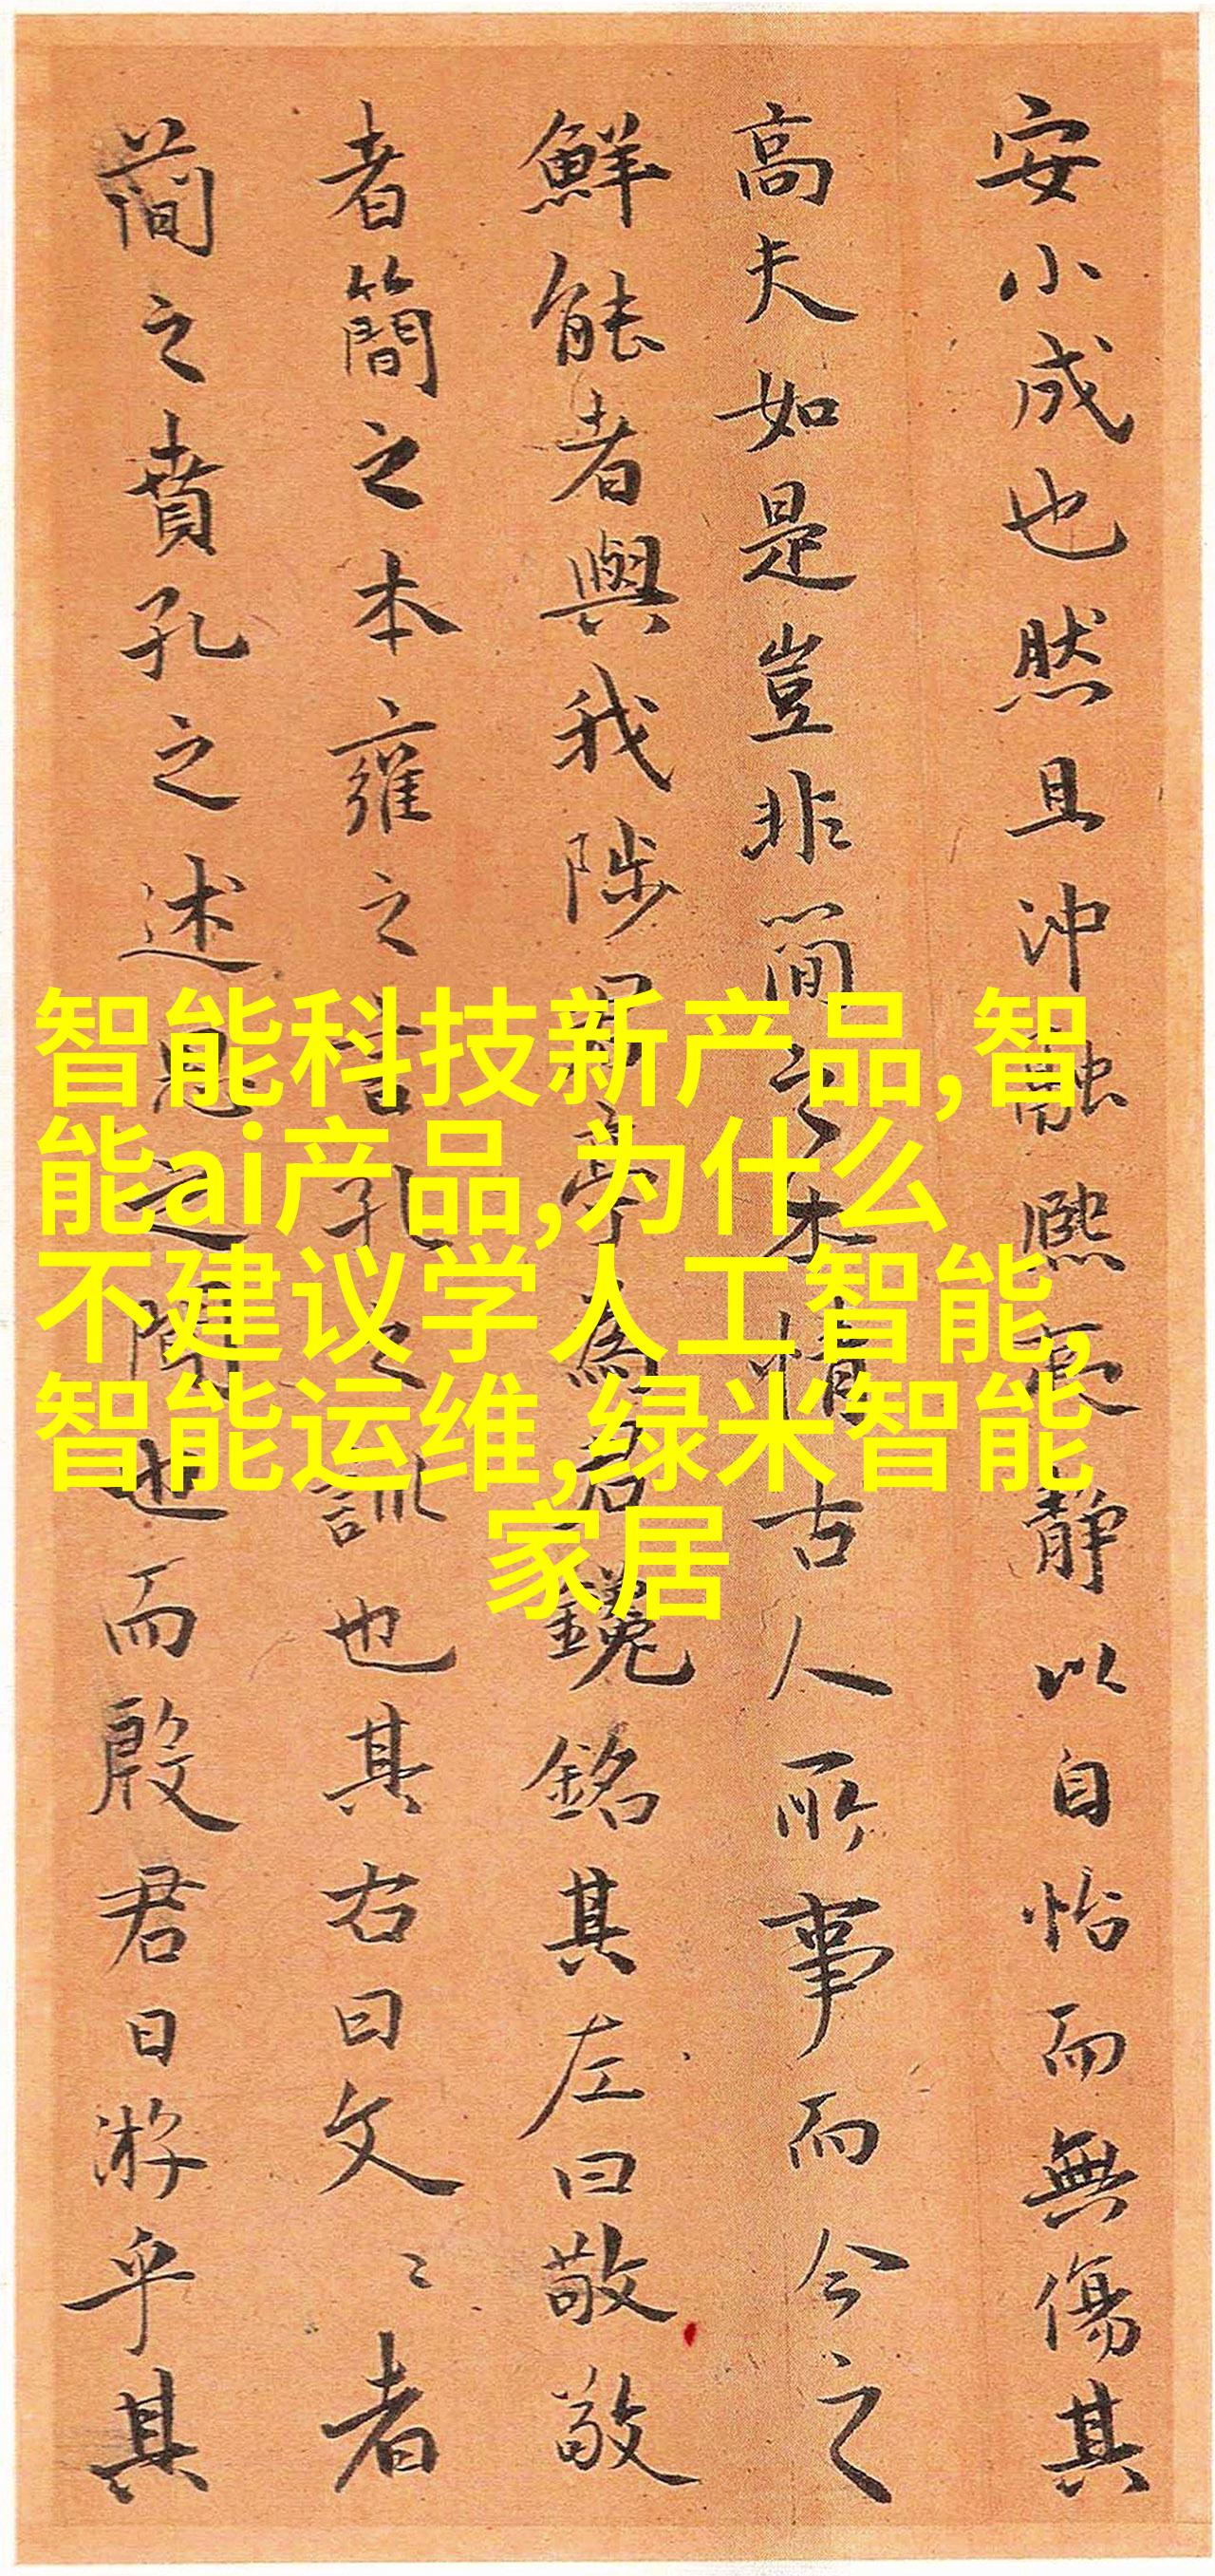 安小成也然且沖融熈夷靜以自怡而無傷其
高夫如是豈非簡之本情古人所事而今之
鮮能者與我陟君亭為君鑱銘其左曰敬敬
者簡之本雍之言孔之訓也其右曰文〻者
簡之賁孔之述思之闇也而殷君日游乎其
智能科技新产品,智
能ai产品,为什么
不建议学人工智能,
智能运维,绿米智能
家居